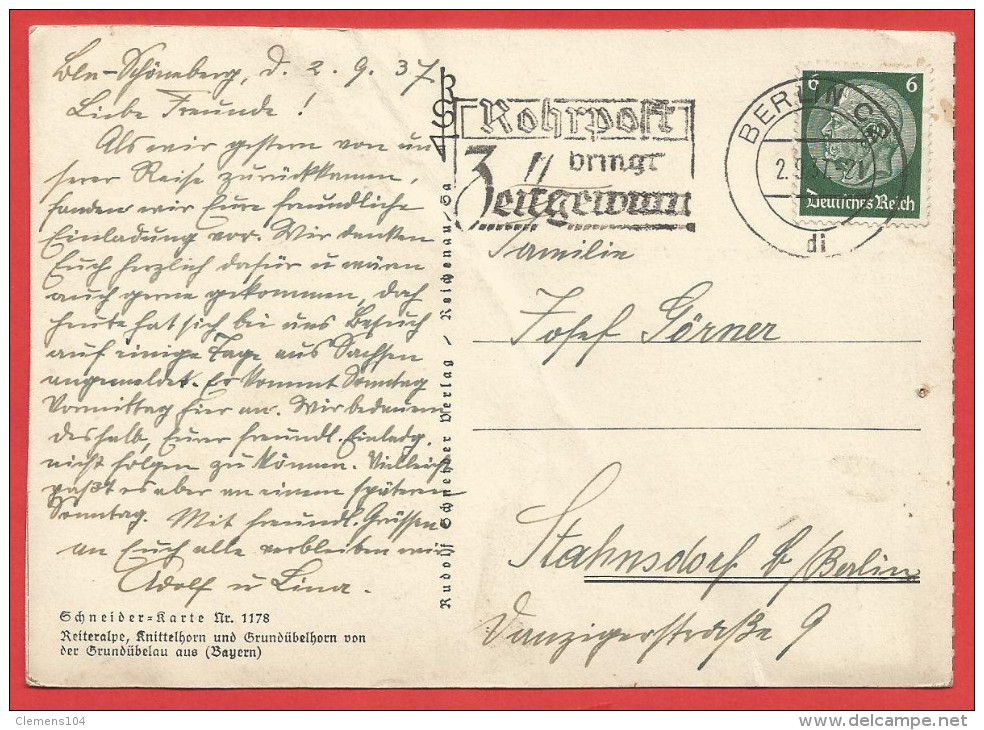 Bln-Schöneberg, d. 2.9.37
Liebe Freunde!
Als wir gestern von un-
serer Reise zurückkamen,
fanden wir Eure freundliche
Einladung vor. Wir danken
Euch herzlich dafür u wären
auch gerne gekommen, doch
heute hat sich bei uns Besuch
auf einige Tage aus Sachsen
angemeldet. Er kommt Sonntag
Vormittag hier an. Wir bedauern
deshalb, Eurer freundl. Einladg.
nicht folgen zu können. Vielleicht
paßt es aber an einem späteren
Sonntag. Mit freundl. Grüssen
an Euch alle verbleiben wir
Adolf u Lina.
Schneider-Karte Nr. 1178
Reiteralpe, Knittelhorn und Grundübelhorn von
der Grundübelau aus (Bayern)
Rudolf Schneider Verlag / Reichenau/Sa
RS
Rohrpost
bringt
Zeitgewinn
BERLIN C2
2.9.37.-21
di
6 6
Deutsches Reich
Familie
Josef Görner
Stahnsdorf b/Berlin
Danzigerstraße 9
Clemens104
www.delcampe.net